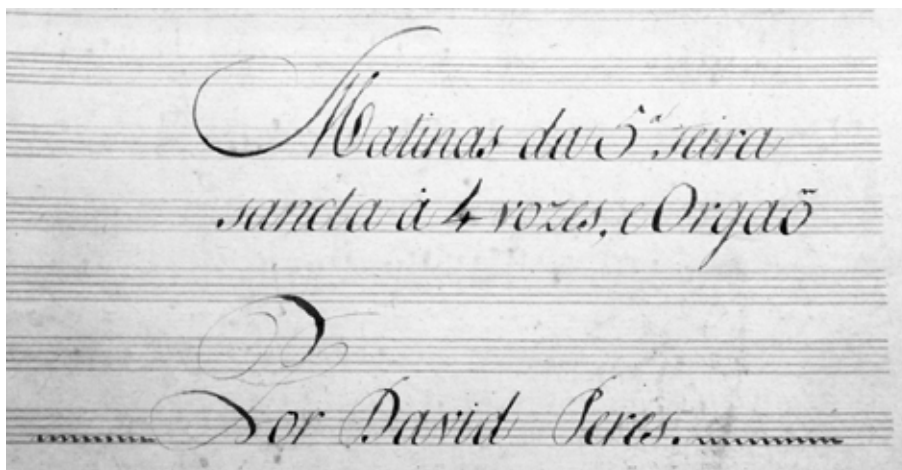 Matinas da 5ª feira
sancta à 4 vozes, e Orgaõ
Por David Peres.